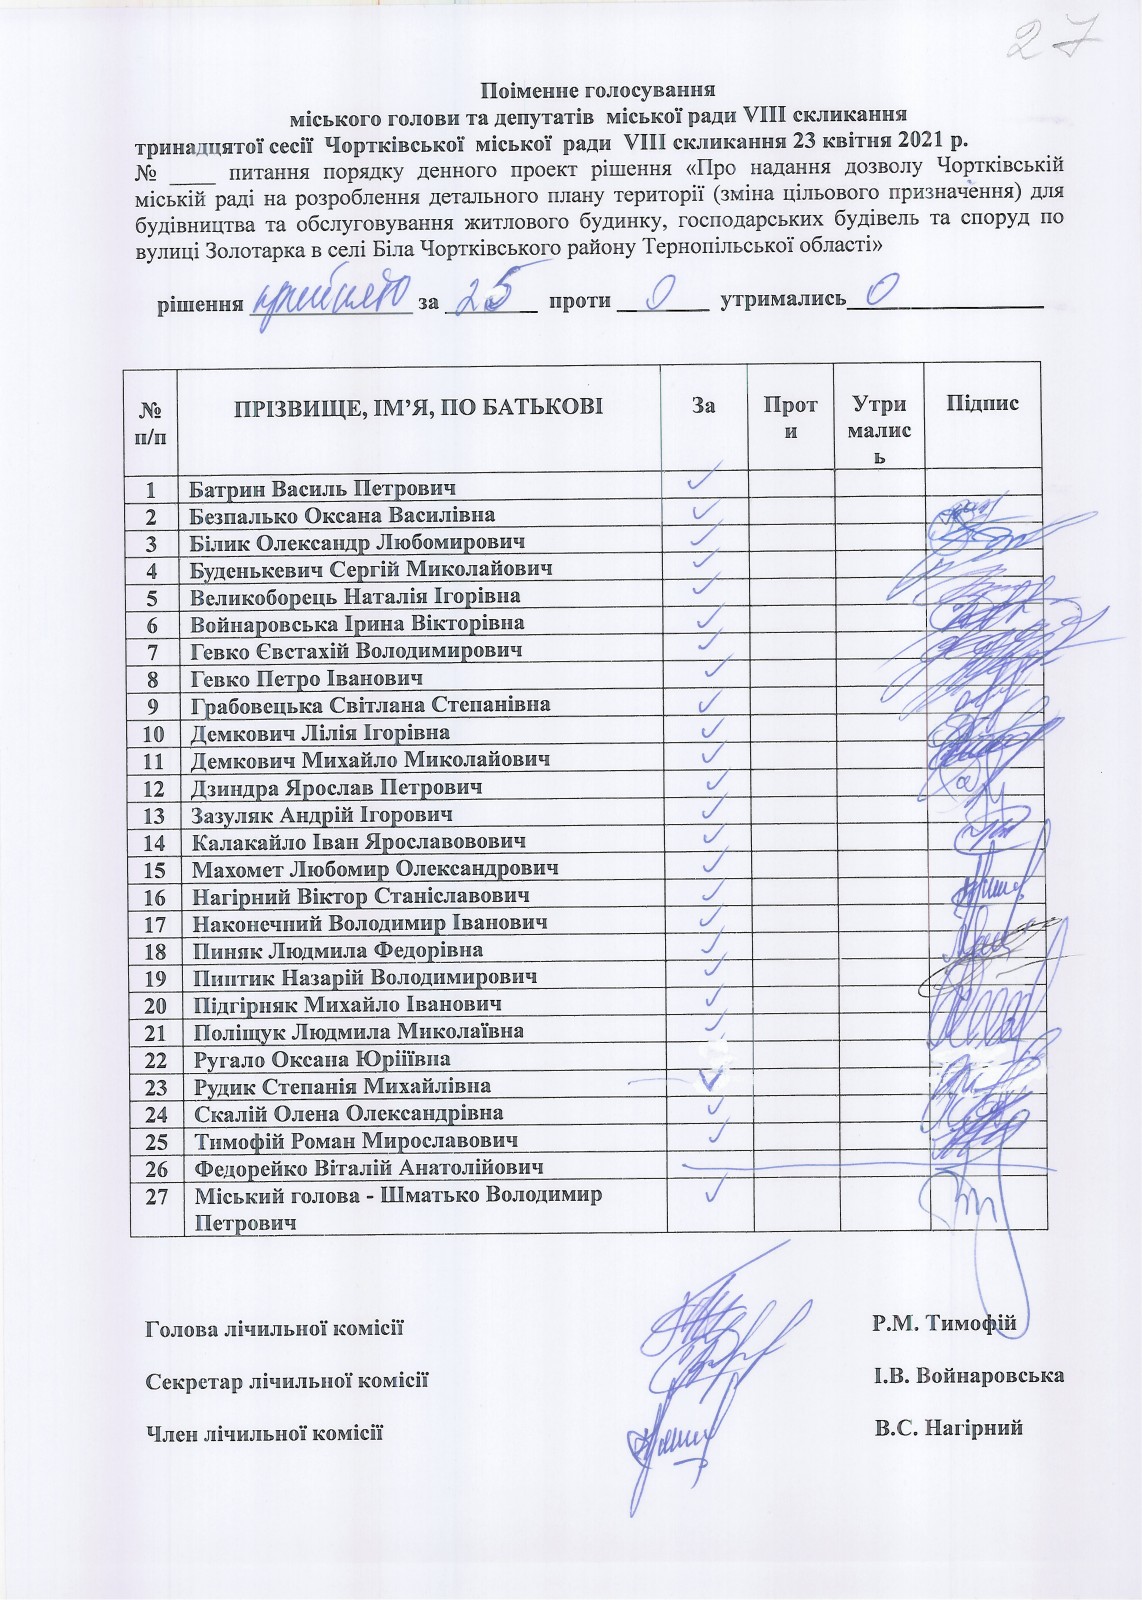 27
Поіменне голосування
міського голови та депутатів міської ради VIII скликання
тринадцятої сесії Чортківської міської ради VIII скликання 23 квітня 2021 р.
№ ____ питання порядку денного проект рішення «Про надання дозволу Чортківській
міській раді на розроблення детального плану території (зміна цільового призначення) для
будівництва та обслуговування житлового будинку, господарських будівель та споруд по
вулиці Золотарка в селі Біла Чортківського району Тернопільської області»
рішення прийнято за 25 проти 0 утримались 0
№ п/п ПРІЗВИЩЕ, ІМ’Я, ПО БАТЬКОВІ За Проти Утрималис ь Підпис
1 Батрин Василь Петрович ✓
2 Безпалько Оксана Василівна ✓
3 Білик Олександр Любомирович ✓
4 Буденькевич Сергій Миколайович ✓
5 Великоборець Наталія Ігорівна ✓
6 Войнаровська Ірина Вікторівна ✓
7 Гевко Євстахій Володимирович ✓
8 Гевко Петро Іванович ✓
9 Грабовецька Світлана Степанівна ✓
10 Демкович Лілія Ігорівна ✓
11 Демкович Михайло Миколайович ✓
12 Дзиндра Ярослав Петрович ✓
13 Зазуляк Андрій Ігорович ✓
14 Калакайло Іван Ярославовович ✓
15 Махомет Любомир Олександрович ✓
16 Нагірний Віктор Станіславович ✓
17 Наконечний Володимир Іванович ✓
18 Пиняк Людмила Федорівна ✓
19 Пиптик Назарій Володимирович ✓
20 Підгірняк Михайло Іванович ✓
21 Поліщук Людмила Миколаївна ✓
22 Ругало Оксана Юріїївна
23 Рудик Степанія Михайлівна ✓
24 Скалій Олена Олександрівна ✓
25 Тимофій Роман Мирославович ✓
26 Федорейко Віталій Анатолійович
27 Міський голова - Шматько Володимир ✓
Петрович
Голова лічильної комісії Р.М. Тимофій
Секретар лічильної комісії І.В. Войнаровська
Член лічильної комісії В.С. Нагірний